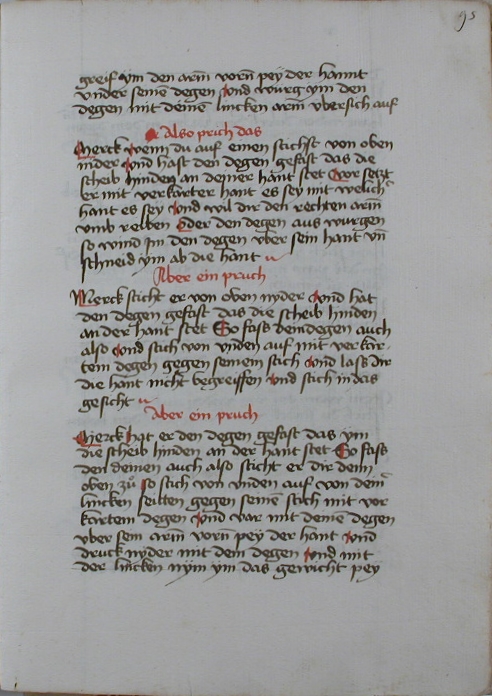 95
greif ym den arm vorn pey der hannt
vnder seinē degen vnd würg ym den
degen mit deinē lincken arm vbersich auf
Also prich das
Merck wenn du auf einen stichst von oben
nider vnd hast den degen gefast das die
scheib hinden an deiner hant stet Vor setzt
er mit verkarter hant es sey mit welicher
hant es sey vnd wil dir den rechten arm
vmb reiben Oder den degen aus würgen
so wind Im den degen vber sein hant vn̄
schneid ym ab die hant
Aber ein pruch
Merck sticht er von oben nyder vnd hat
den degen gefast das die scheib hinden
an der hant stet So fass dein degen auch
also vnd stich von vnden auf mit verkar-
tem degen gegen seinem stich vnd lass dir
die hant nicht begreiffen vnd stich in das
gesicht
Aber ein pruch
Merck hat er den degen gefast das ym
die scheib hinden an der hant stet So fass
den deinen auch also sticht er dir denn
oben zů so stich von vnden auf von deinē
lincken seitten gegen seinē stich mit vor
kartem degen vnd var mit deinē degen
vber sein arm vorn pey der hant vnd
druck nyder mit dem degen vnd mit
der lincken nym ym das gewicht pey